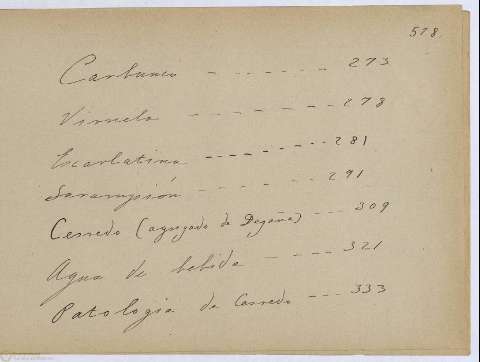 578
Carbunco - - - - - - 273
Viruela - - - - - - 278
Escarlatina - - - - - - 281
Sarampión - - - - - 291
Cerredo (agregado de Degaña) - - - 309
Agua de bebida - - - - 321
Patología de Cerredo - - - 333